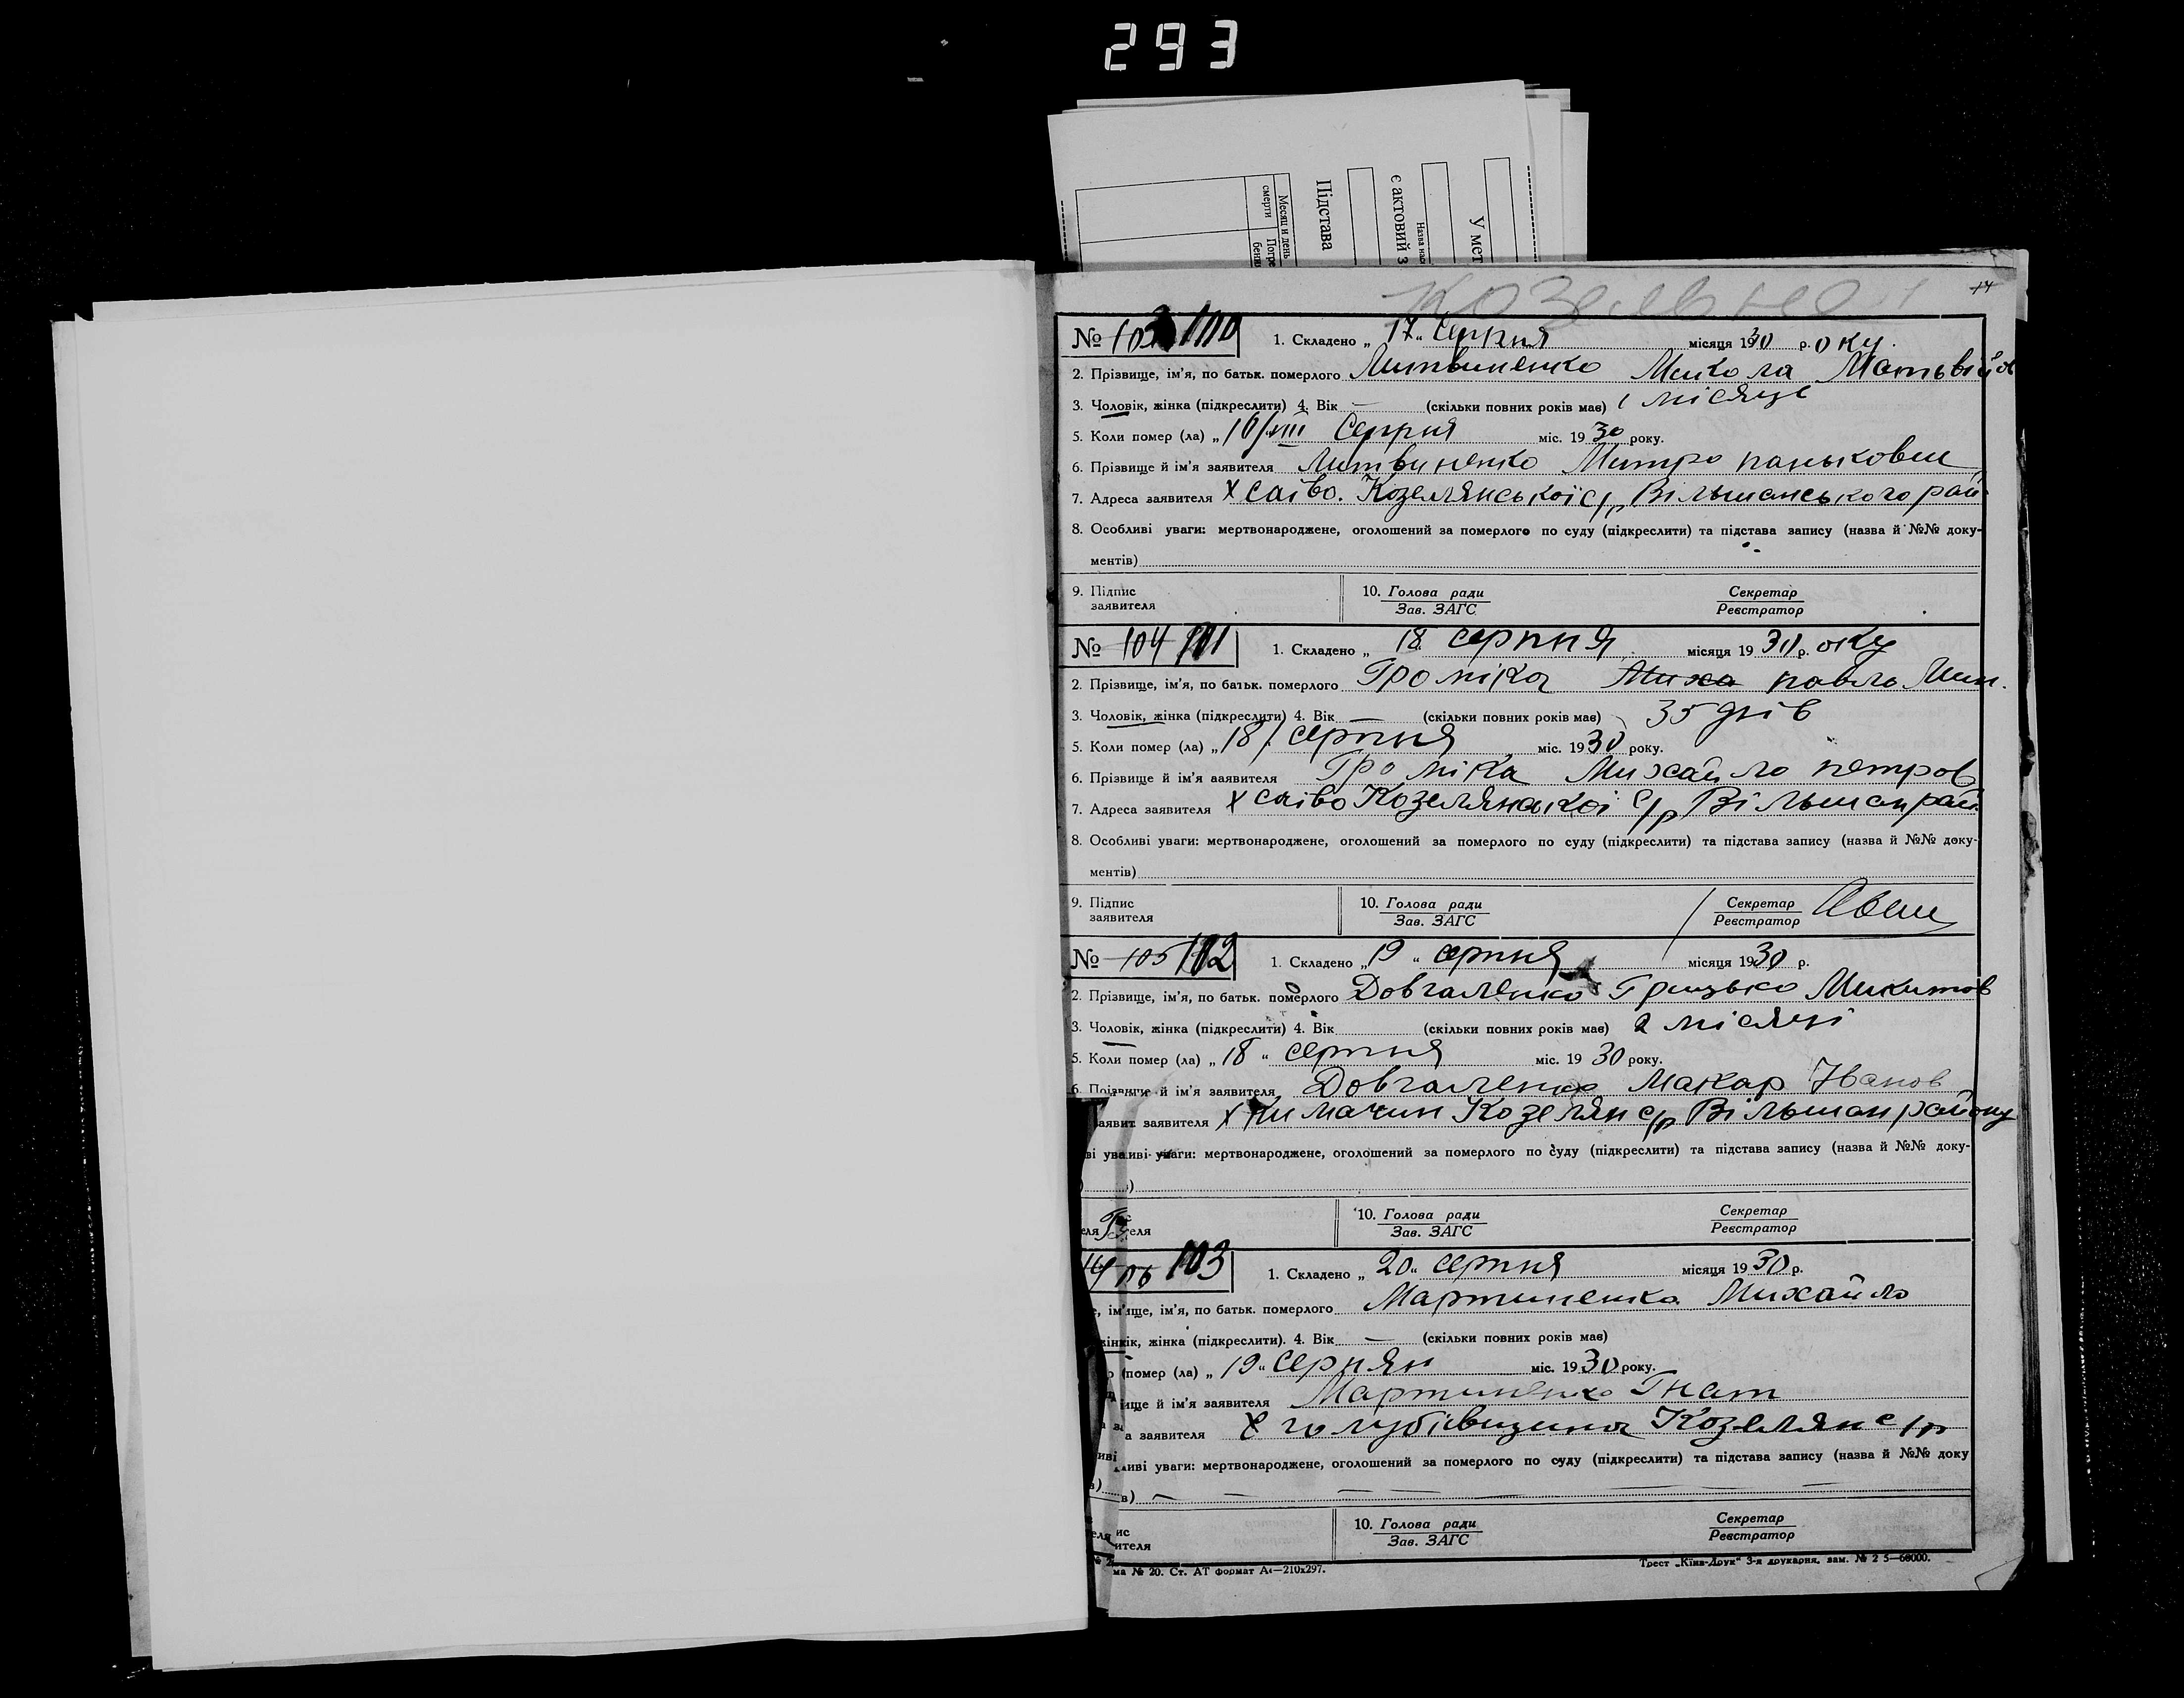 293
У мет
є актовий з
Назва нас
Підстава
Месяц и день
смерти
Погре
бени
Козельне
14
№ 103 100 1. Складено „17“ Серпня місяця 1930 р. оку.
2. Прізвище, ім'я, по батьк. померлого Литвиненко Микола Матьвійов
3. Чоловік, жінка (підкреслити) 4. Вік — (скільки повних років має) 1 місяць
5. Коли помер (ла) „16/VIII Серпня міс. 1930 року.
6. Прізвище й ім'я заявителя Литвиненко Митро паньков
7. Адреса заявителя х саіво. Козелянської с/р Вільшанського рай
8. Особливі уваги: мертвонароджене, оголошений за померлого по суду (підкреслити) та підстава запису (назва й №№ доку-
ментів)
9. Підпис заявителя 10. Голова ради Зав. ЗАГС Секретар Реєстратор
№ 104 101 1. Складено „18 серпня місяця 1930 р. оку
2. Прізвище, ім'я, по батьк. померлого Громіка Миха павло Мих.
3. Чоловік, жінка (підкреслити) 4. Вік — (скільки повних років має) 35 днів
5. Коли помер (ла) „18/ серпня міс. 1930 року.
6. Прізвище й ім'я заявителя Громіка Михайло петров
7. Адреса заявителя х саіво Козелянської с/р Вільшан рай
8. Особливі уваги: мертвонароджене, оголошений за померлого по суду (підкреслити) та підстава запису (назва й №№ доку-
ментів)
9. Підпис заявителя 10. Голова ради Зав. ЗАГС Секретар Реєстратор
№ 105 102 1. Складено „19“ серпня місяця 1930 р.
2. Прізвище, ім'я, по батьк. померлого Довгаленко Грицько Микитов
3. Чоловік, жінка (підкреслити) 4. Вік (скільки повних років має) 2 місяці
5. Коли помер (ла) „18“ серпня міс. 1930 року.
6. Прізвище й ім'я заявителя Довгаленко Макар Іванов
заявителя х Кимачин Козелян с/р Вільшан району
уваги: мертвонароджене, оголошений за померлого по суду (підкреслити) та підстава запису (назва й №№ доку-
)
еля 10. Голова ради Зав. ЗАГС Секретар Реєстратор
106 103 1. Складено „20“ серпня місяця 1930 р.
ім'я, по батьк. померлого Мартиненко Михайло
жінка (підкреслити). 4. Вік — (скільки повних років має)
помер (ла) „19“ Серпян міс. 1930 року.
ище й ім'я заявителя Мартиненко Гнат
а заявителя х голубієвщина Козелян с/р
иві уваги: мертвонароджене, оголошений за померлого по суду (підкреслити) та підстава запису (назва й №№ доку
в)
ис ителя 10. Голова ради Зав. ЗАГС Секретар Реєстратор
ма № 20. Ст. АТ формат А4—210х297. Трест „Київ-Друк“ 3-я друкарня, зам. № 2 5—68000.